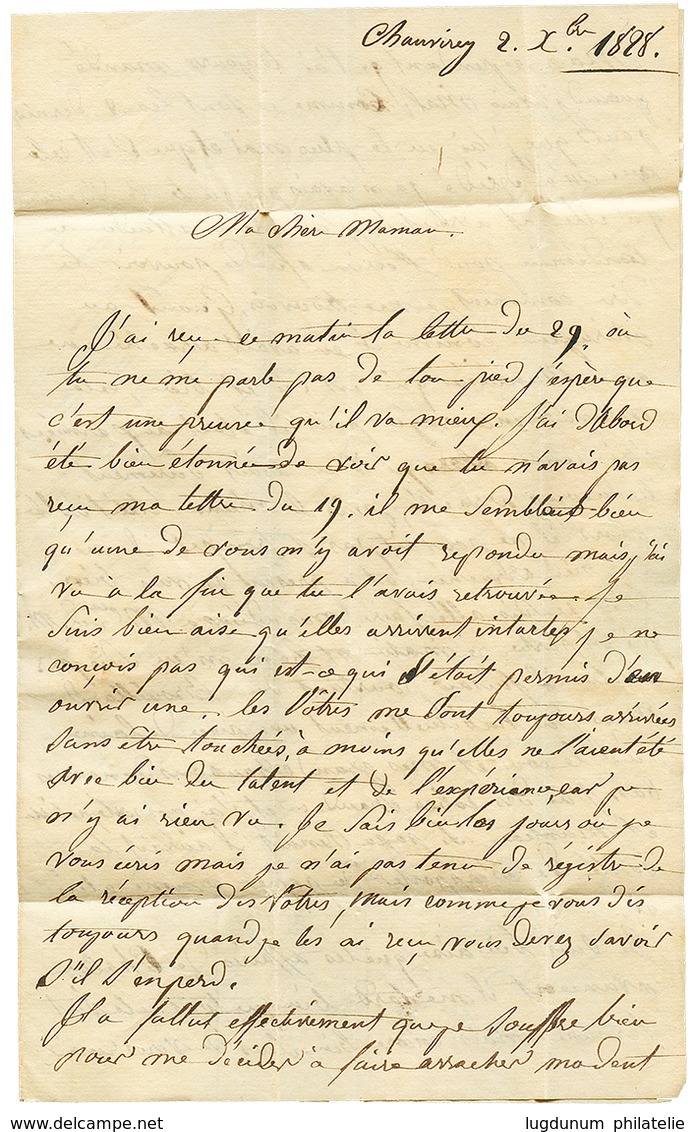 Chauvirey 2. Xbre. 1828.
Ma chère Maman.
J'ai reçu ce matin ta lettre du 29, où
tu ne me parle pas de ton pied j'espère que
c'est une preuve qu'il va mieux. J'ai d'abord
été bien étonnée de voir que tu n'avais pas
reçu ma lettre du 19. il me semblait bien
qu'une de vous m'y avoit repondu mais j'ai
vu à la fin que tu l'avais retrouvée. Je
suis bien aise qu'elles arrivent intactes je ne
conçois pas qui est-ce qui s'était permis d'en
ouvrir une, les vôtres me sont toujours arrivées
sans être touchées, à moins qu'elles ne l'aient été
avec bien du talent et de l'expérience, car je
n'y ai rien vu. Je sais bien les jours où je
vous écris mais je n'ai pas tenu de régistre de
la réception des vôtres, mais comme je vous dis
toujours quand je les ai reçu, vous devez savoir
s'il s'en perd.
Il a fallut effectivement que je souffre bien
pour me décider à faire arracher ma dent
lugdunum philatelie
www.delcampe.net